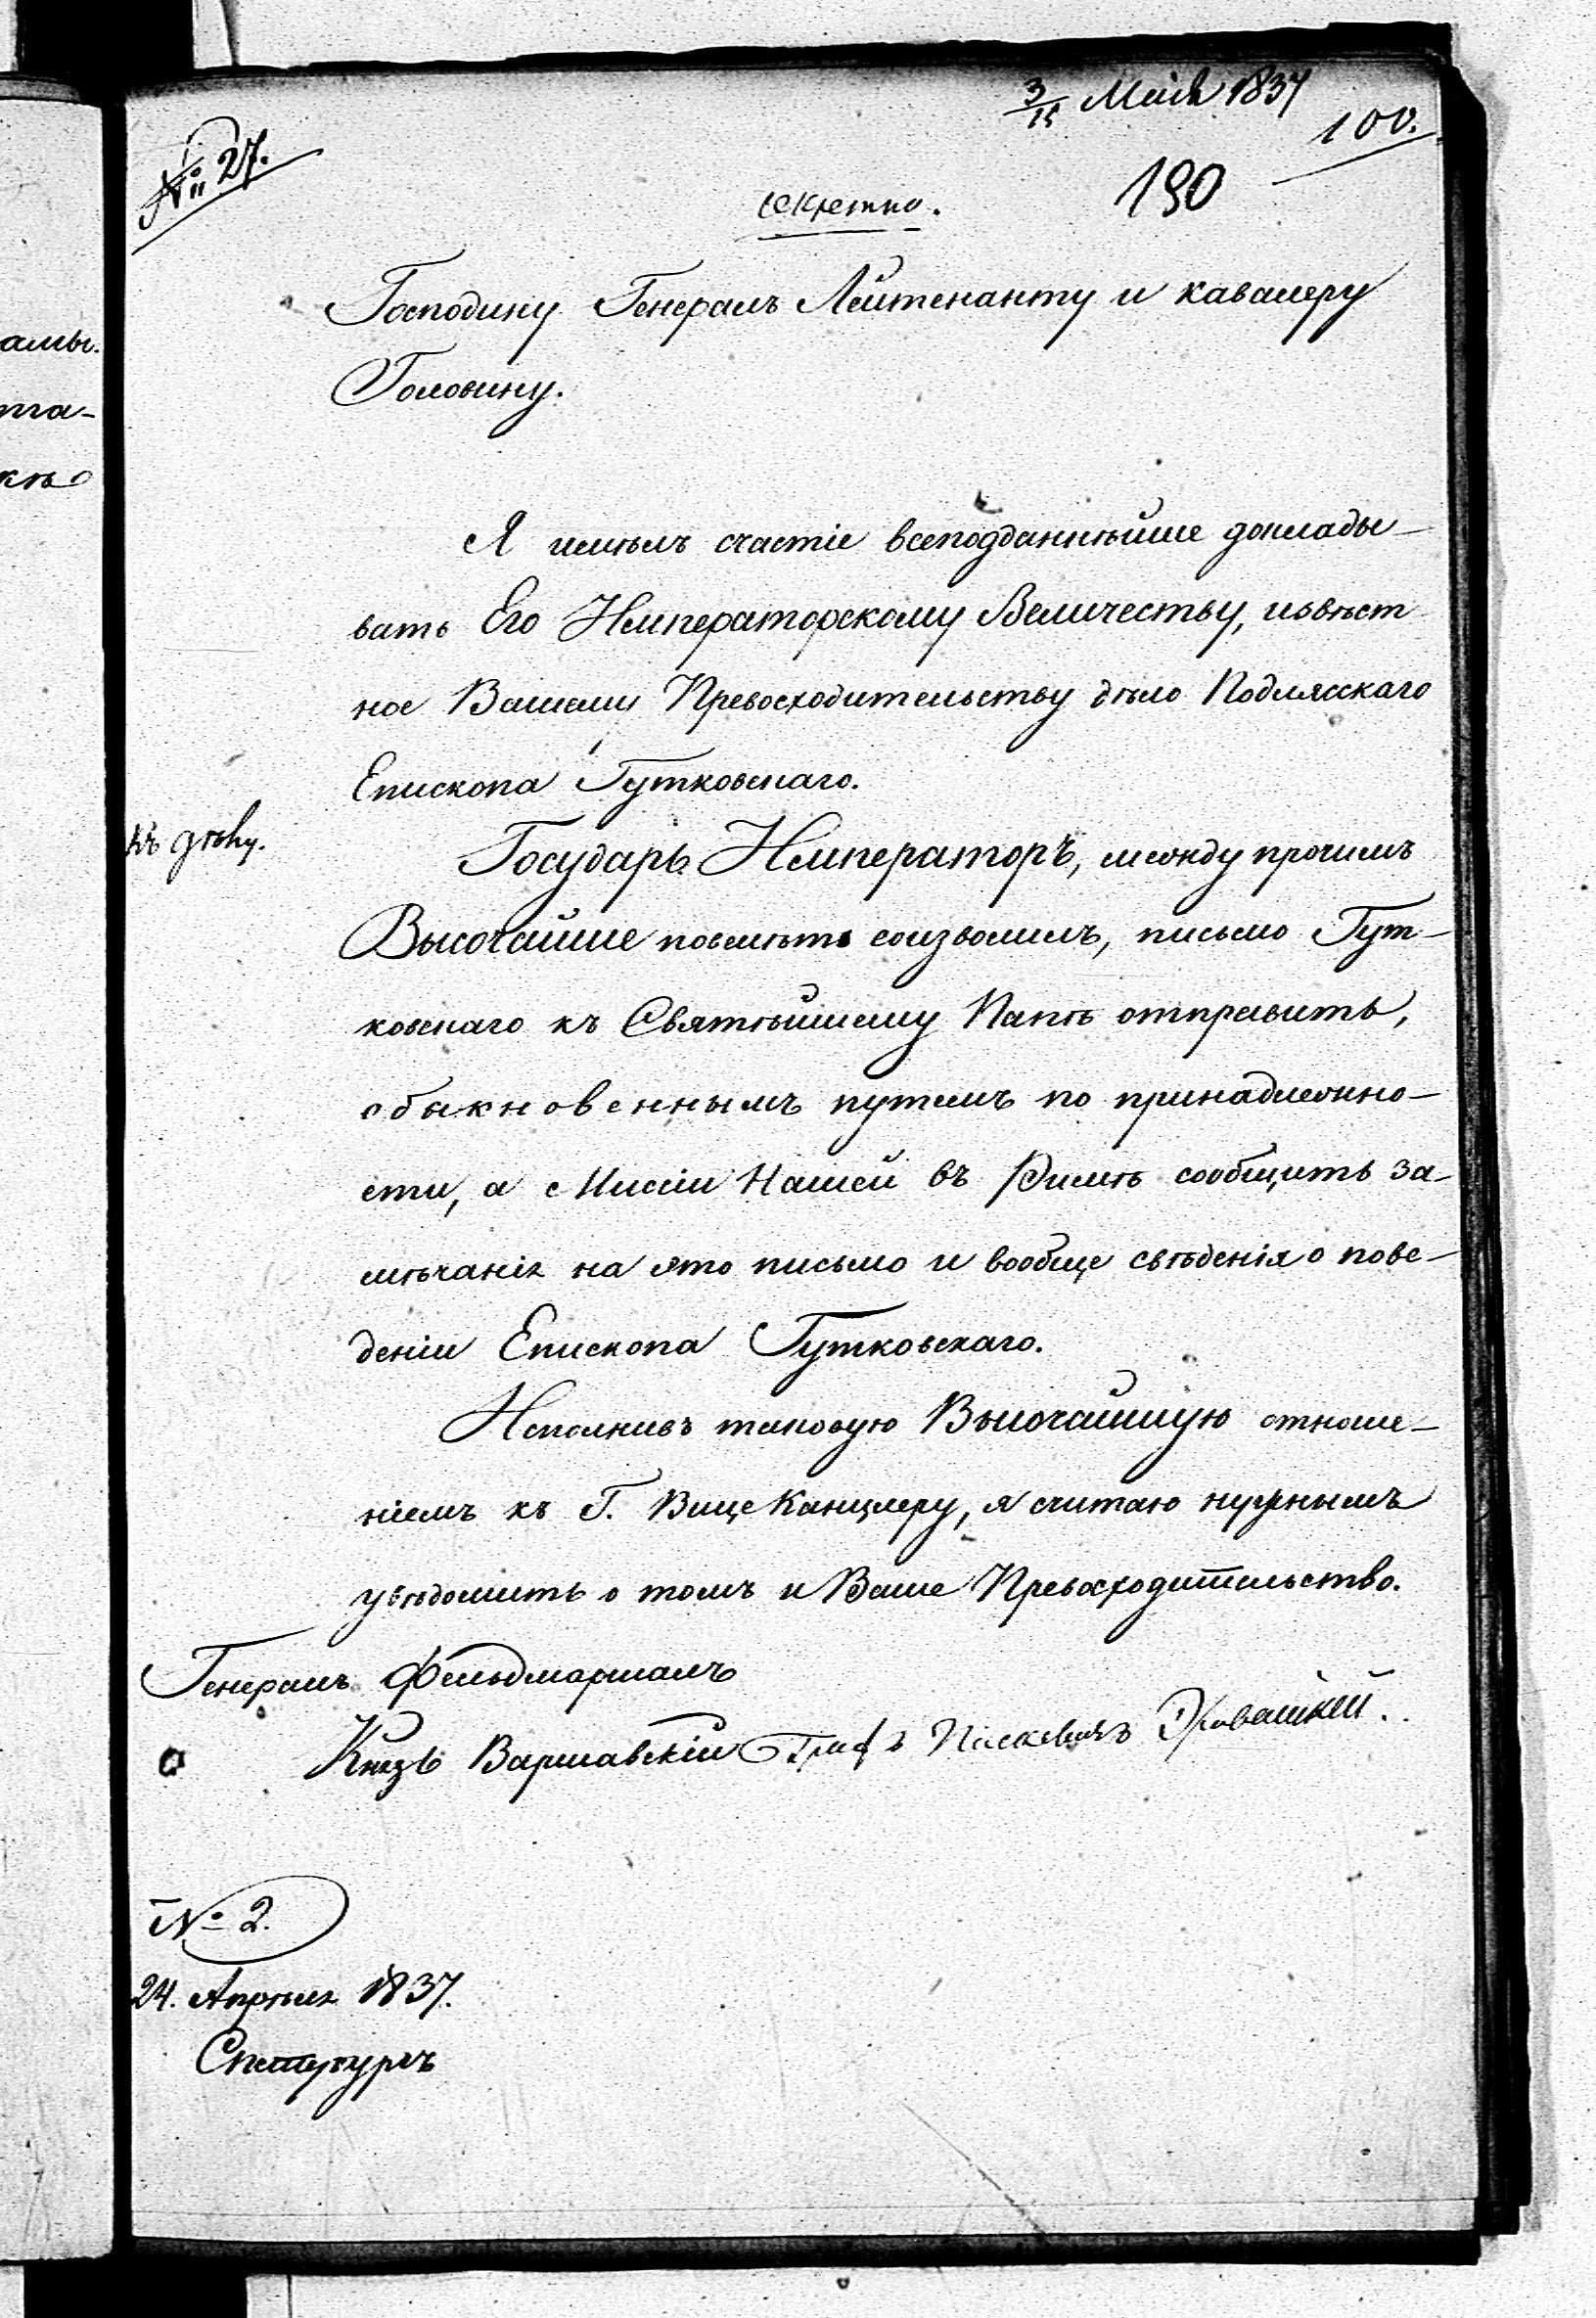 3/15 Мая 1837
100.
№ 27.
190
секретно.
Господину Генералъ Лейтенанту и кавалеру
Головину.
Я имѣлъ счастіе всеподданнѣйше доклады-
вать Его Императорскому Величеству, извѣст
ное Вашему Превосходительству дѣло Подлясскаго
Епископа Гутковскаго.
Къ дѣлу.
Государь Императоръ, между прочимъ
Высочайше повелѣть соизволилъ, письмо Гут-
ковскаго къ Святѣйшему Папѣ отправить,
обыкновеннымъ путемъ по принадлежно-
сти, а Миссіи Нашей въ Римѣ сообщить за-
мѣчанія на это письмо и вообще свѣденія о пове-
деніи Епископа Гутковскаго.
Исполнивъ таковую Высочайшую отноше-
ніемъ къ Г. Вице Канцлеру, я считаю нужнымъ
увѣдомить о томъ и Ваше Превосходительство.
Генералъ Фельдмаршалъ
Князь Варшавскій Графъ Паскевичъ Эриванскій.
№ 2.
24. Апрѣля 1837.
амы.
та-
кѣ